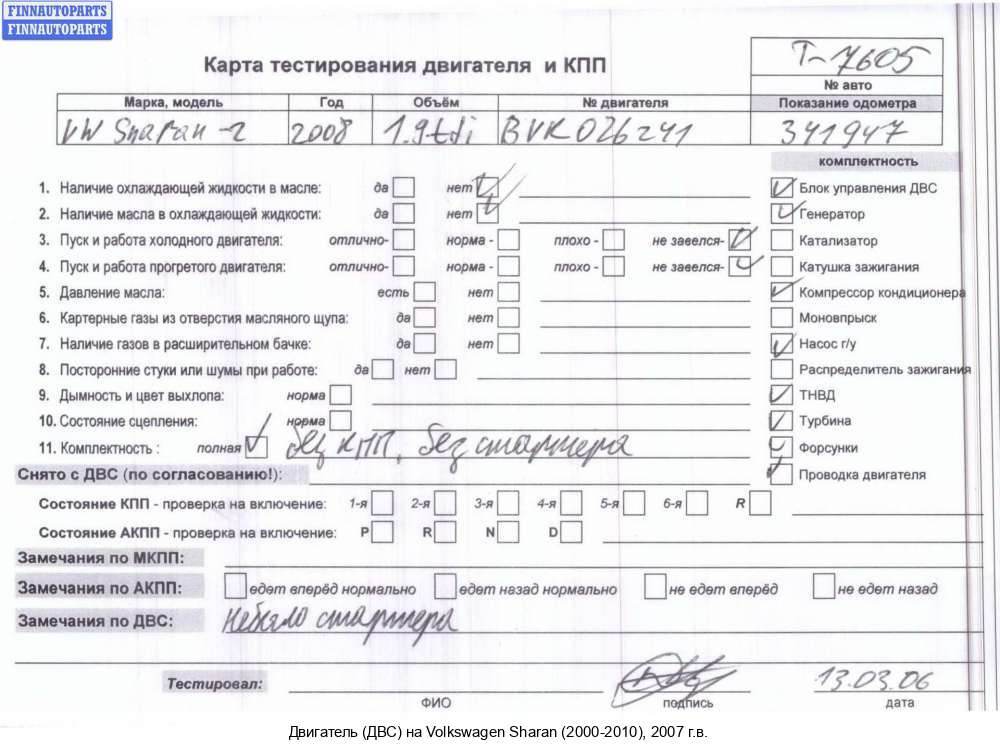 FINNAUTOPARTS
FINNAUTOPARTS
Карта тестирования двигателя и КПП
T-7605
№ авто
Марка, модель Год Объём № двигателя Показание одометра
VW Sharan-2 2008 1.9tdi BVK026241 341947
комплектность
1. Наличие охлаждающей жидкости в масле: да нет Блок управления ДВС
2. Наличие масла в охлаждающей жидкости: да нет Генератор
3. Пуск и работа холодного двигателя: отлично- норма - плохо - не завелся- Катализатор
4. Пуск и работа прогретого двигателя: отлично- норма - плохо - не завелся- Катушка зажигания
5. Давление масла: есть нет Компрессор кондиционера
6. Картерные газы из отверстия масляного щупа: да нет Моновпрыск
7. Наличие газов в расширительном бачке: да нет Насос г/у
8. Посторонние стуки или шумы при работе: да нет Распределитель зажигания
9. Дымность и цвет выхлопа: норма ТНВД
10. Состояние сцепления: норма Турбина
11. Комплектность : полная без КПП, без стартера Форсунки
Снято с ДВС (по согласованию!): Проводка двигателя
Состояние КПП - проверка на включение: 1-я 2-я 3-я 4-я 5-я 6-я R
Состояние АКПП - проверка на включение: P R N D
Замечания по МКПП:
Замечания по АКПП: едет вперёд нормально едет назад нормально не едет вперёд не едет назад
Замечания по ДВС: небыло стартера
Тестировал: 13.03.06
ФИО подпись дата
Двигатель (ДВС) на Volkswagen Sharan (2000-2010), 2007 г.в.